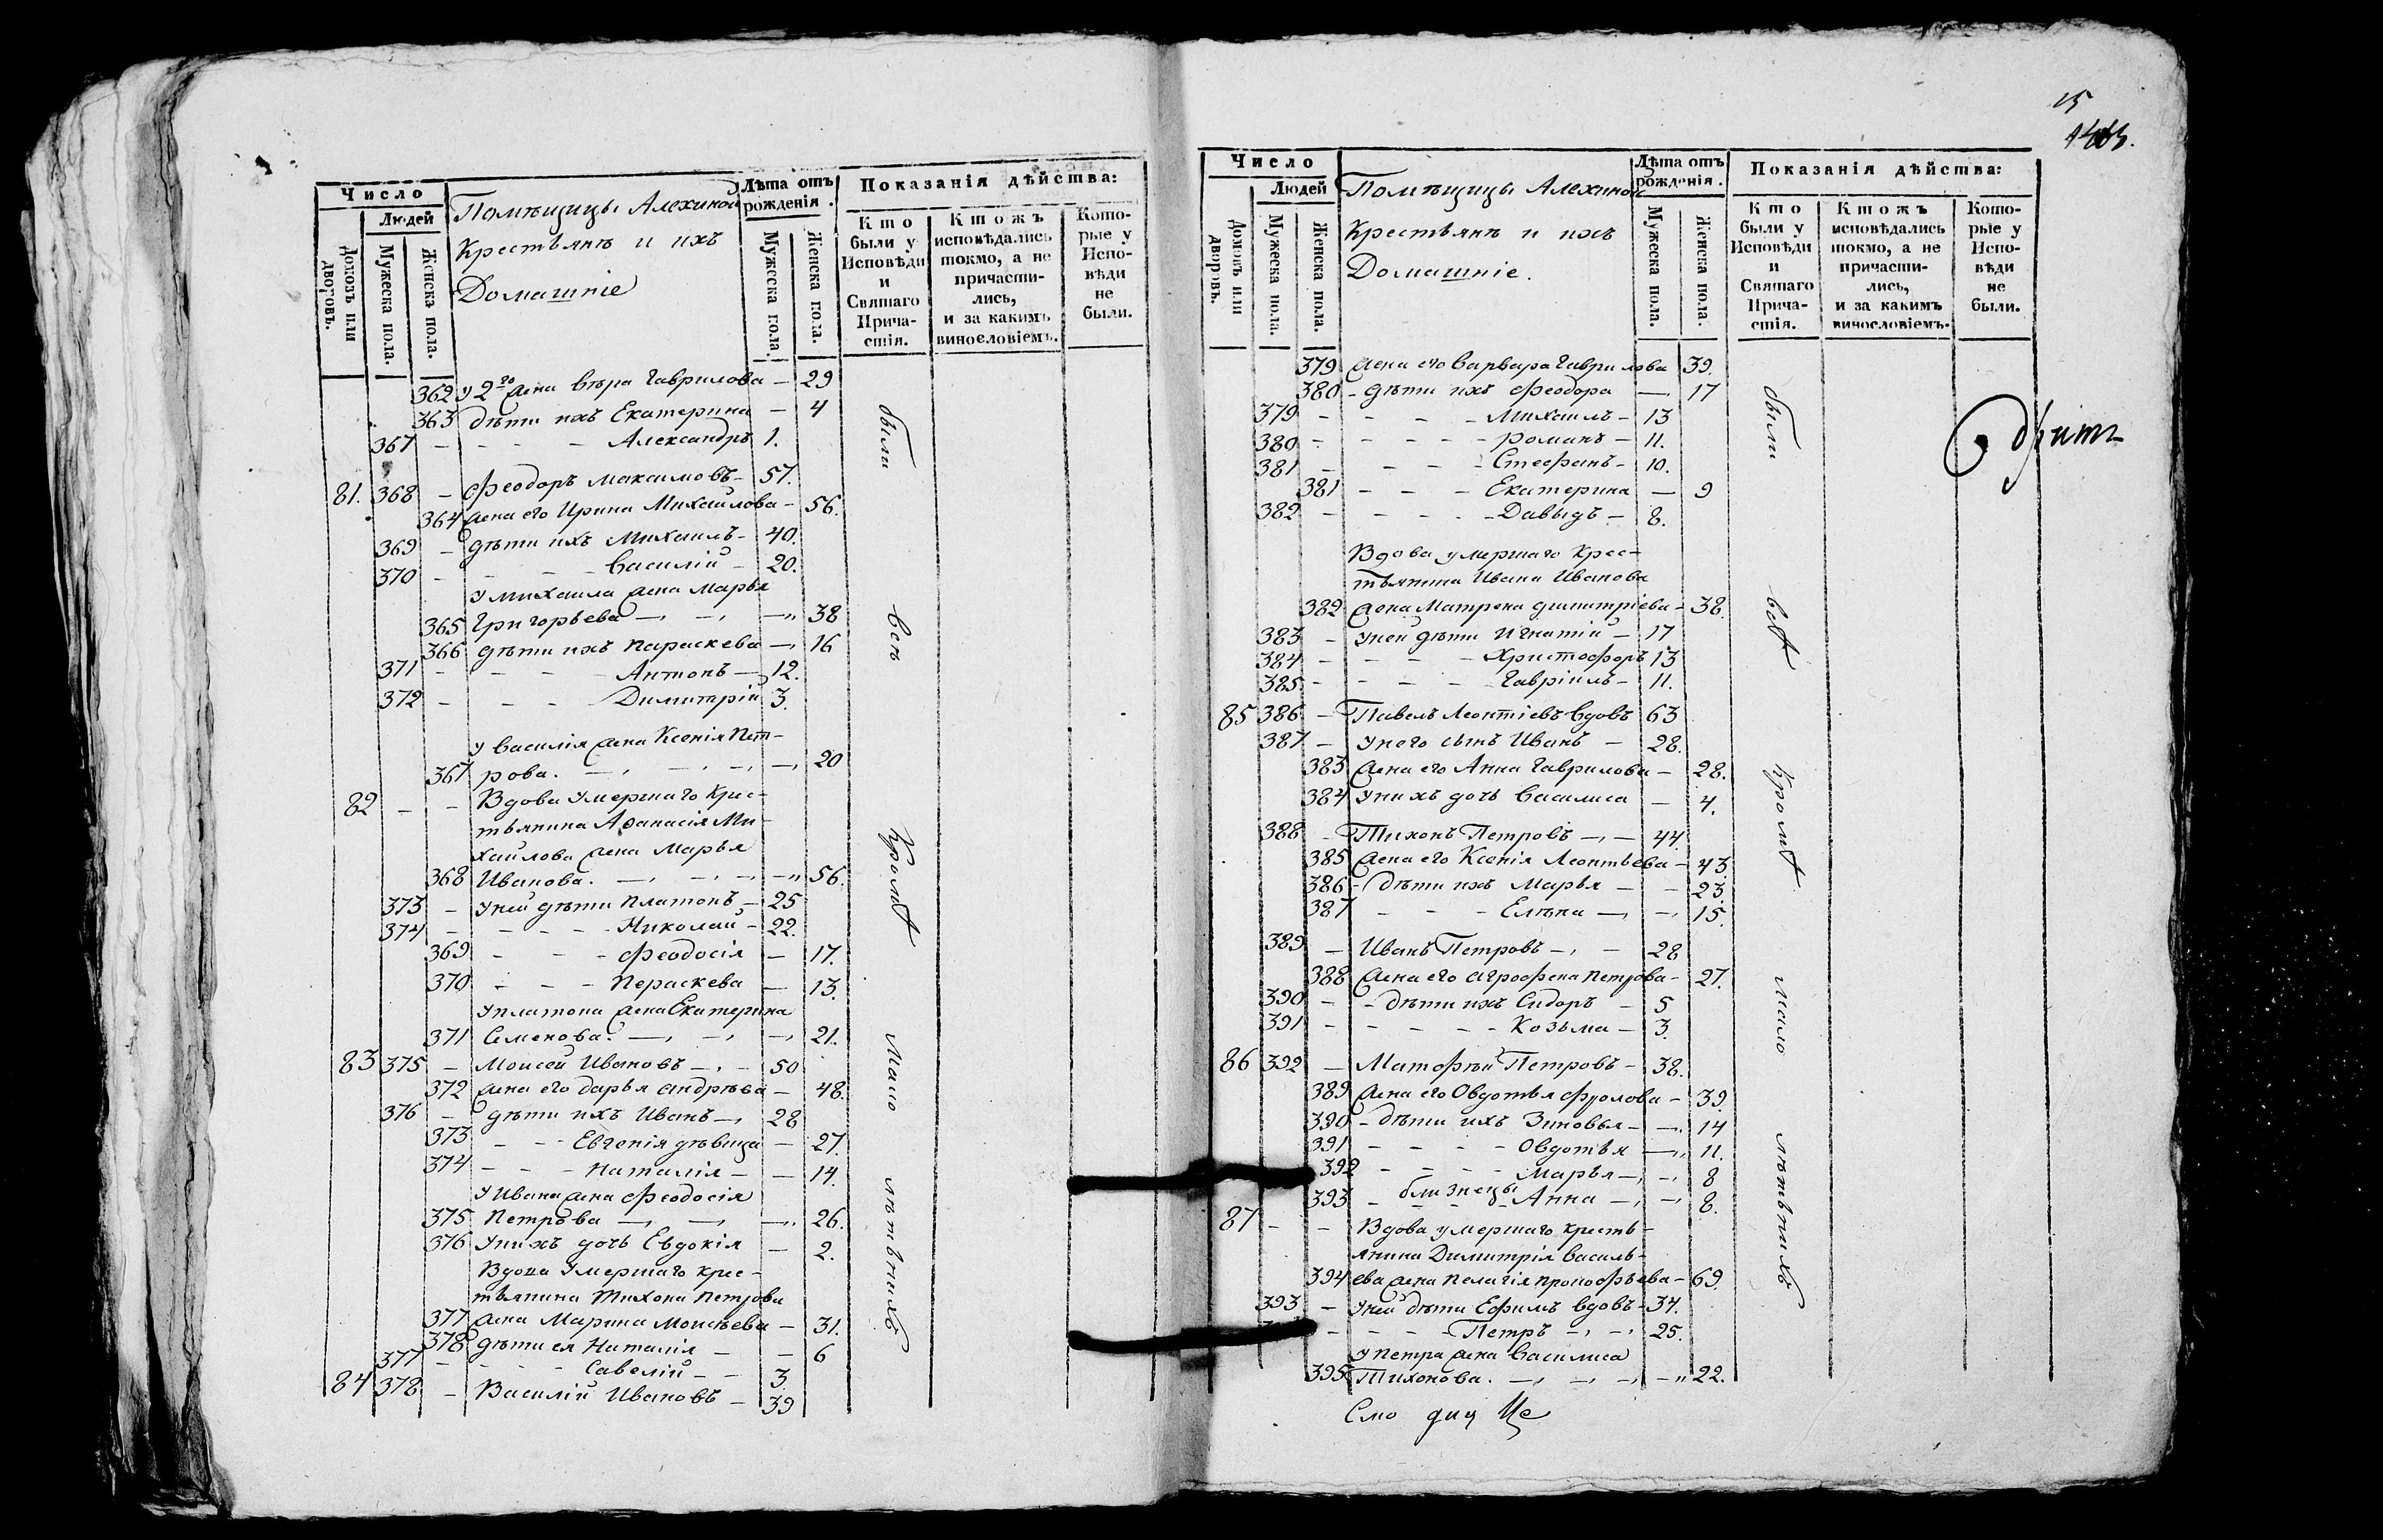 Число
Людей
Домовъ или дворовъ.
Мужеска пола.
Женска пола.
Помѣщицы Алехиной
Крестьянѣ и ихъ
Домашніе
Лѣта отъ рожденія.
Мужеска пола.
Женска пола.
Показанія дѣйства:
Кто были у Исповѣди и Святаго Причастія.
Ктожъ исповѣдались токмо, а не причастились, и за какимъ винословіемъ.
Которые у Исповѣди не были.
362 у 2го жена Вѣра Гаврилова — 29
363 дѣти ихъ Екатерина — 4
367 - - - - Александръ 1.
81. 368 - Феодоръ Максимовъ - 57.
364 жена его Ирина Михайлова - 56.
369 - дѣти ихъ Михаилъ - 40.
370 - - - - Василій - 20.
у Михаила жена Марья
365 Григорьева — - — 38
366 дѣти ихъ Параскева — 16
371 - - - - Антонъ — 12.
372 - - - Димитрій 3.
у Василія жена Ксенія Пет-
367 рова. — - — - — 20
82 - - Вдова умершаго Крес-
тьянина Афанасія Ми-
хайлова жена Марья
368 Иванова. — - — 56.
373 - у ней дѣти Платонъ - 25
374 - - - - Николай - 22.
369 - - - Феодосія — 17.
370 - - - Пераскева — 13.
у Платона жена Екатерина
371 Семенова. — - — 21.
83 375 - Моисей Ивановъ — - 50
372 жена его Дарья Андрѣева - 48.
376 - дѣти ихъ Иванъ — 28
373 - - - Евгенія дѣвица - 27.
374 - - - Наталія - - 14.
у Ивана жена Феодосія
375 Петрова — — — 26.
376 у нихъ дочь Евдокія — 2.
Вдова умершаго крес-
тьянина Тихона Петрова
377 жена Марина Моисѣева - 31.
378 дѣти ея Наталія - - 6
377 - - - - Савелій - - 3.
84 378 - Василій Ивановъ - 39
были
всѣ
Кромѣ
мало
лѣтнихъ
15
Число
Людей
Домовъ или дворовъ.
Мужеска пола.
Женска пола.
Помѣщицы Алехиной
Крестьянѣ и ихъ
Домашніе.
Лѣта отъ рожденія.
Мужеска пола.
Женска пола.
Показанія дѣйства:
Кто были у Исповѣди и Святаго Причастія.
Ктожъ исповѣдались токмо, а не причастились, и за какимъ винословіемъ.
Которые у Исповѣди не были.
379 жена его Варвара Гаврилова 39.
380 - дѣти ихъ Феодора — 17
379 - - - - Михаилъ - 13
380 - - - - - Романъ - 11.
381 - - - - Стефанъ - 10.
381 - - - Екатерина — 9
382 - - - - - Давыдъ - 8.
Вдова умершаго Крес-
тьянина Ивана Иванова
382 жена Матрена Димитріева - 38.
383 - у ней дѣти Игнатій - 17
384 - - - - Христофоръ 13
385 - - - - - Гавріилъ - 11.
85 386 - Павелъ Леонтіевъ вдовъ 63
387 - у него сынъ Иванъ - 28.
383 жена его Анна Гаврилова - 28.
384 у нихъ дочь Василиса — 4.
388 - Тихонъ Петровъ — - 44
385 жена его Ксенія Леонтьева - 43.
386 - дѣти ихъ Марья — - 23.
387 - - - Елѣна — - 15.
389 - Иванъ Петровъ — - 28
388 жена его Агрофена Петрова - 27.
390 - - дѣти ихъ Сидоръ - 5
391 - - - - - Козьма - 3.
86 392 - Матфѣй Петровъ - 38.
389 жена его Овдотья Фролова - 39.
390 - дѣти ихъ Зиновья - — 14
391 - - - - Овдотья — 11.
392 - - - - Марья — - 8
393 - близнецы Анна — - 8.
87 - - Вдова умершаго кресть-
янина Димитрія Василь-
394 ева жена Пелагія Прокофьева - 69.
393 - у ней дѣти Ефимъ вдовъ - 34.
- - - - Петръ — - 25.
у Петра жена Василиса
395 Тихонова. — - — - 22.
были
всѣ
кромѣ
мало
лѣтнихъ